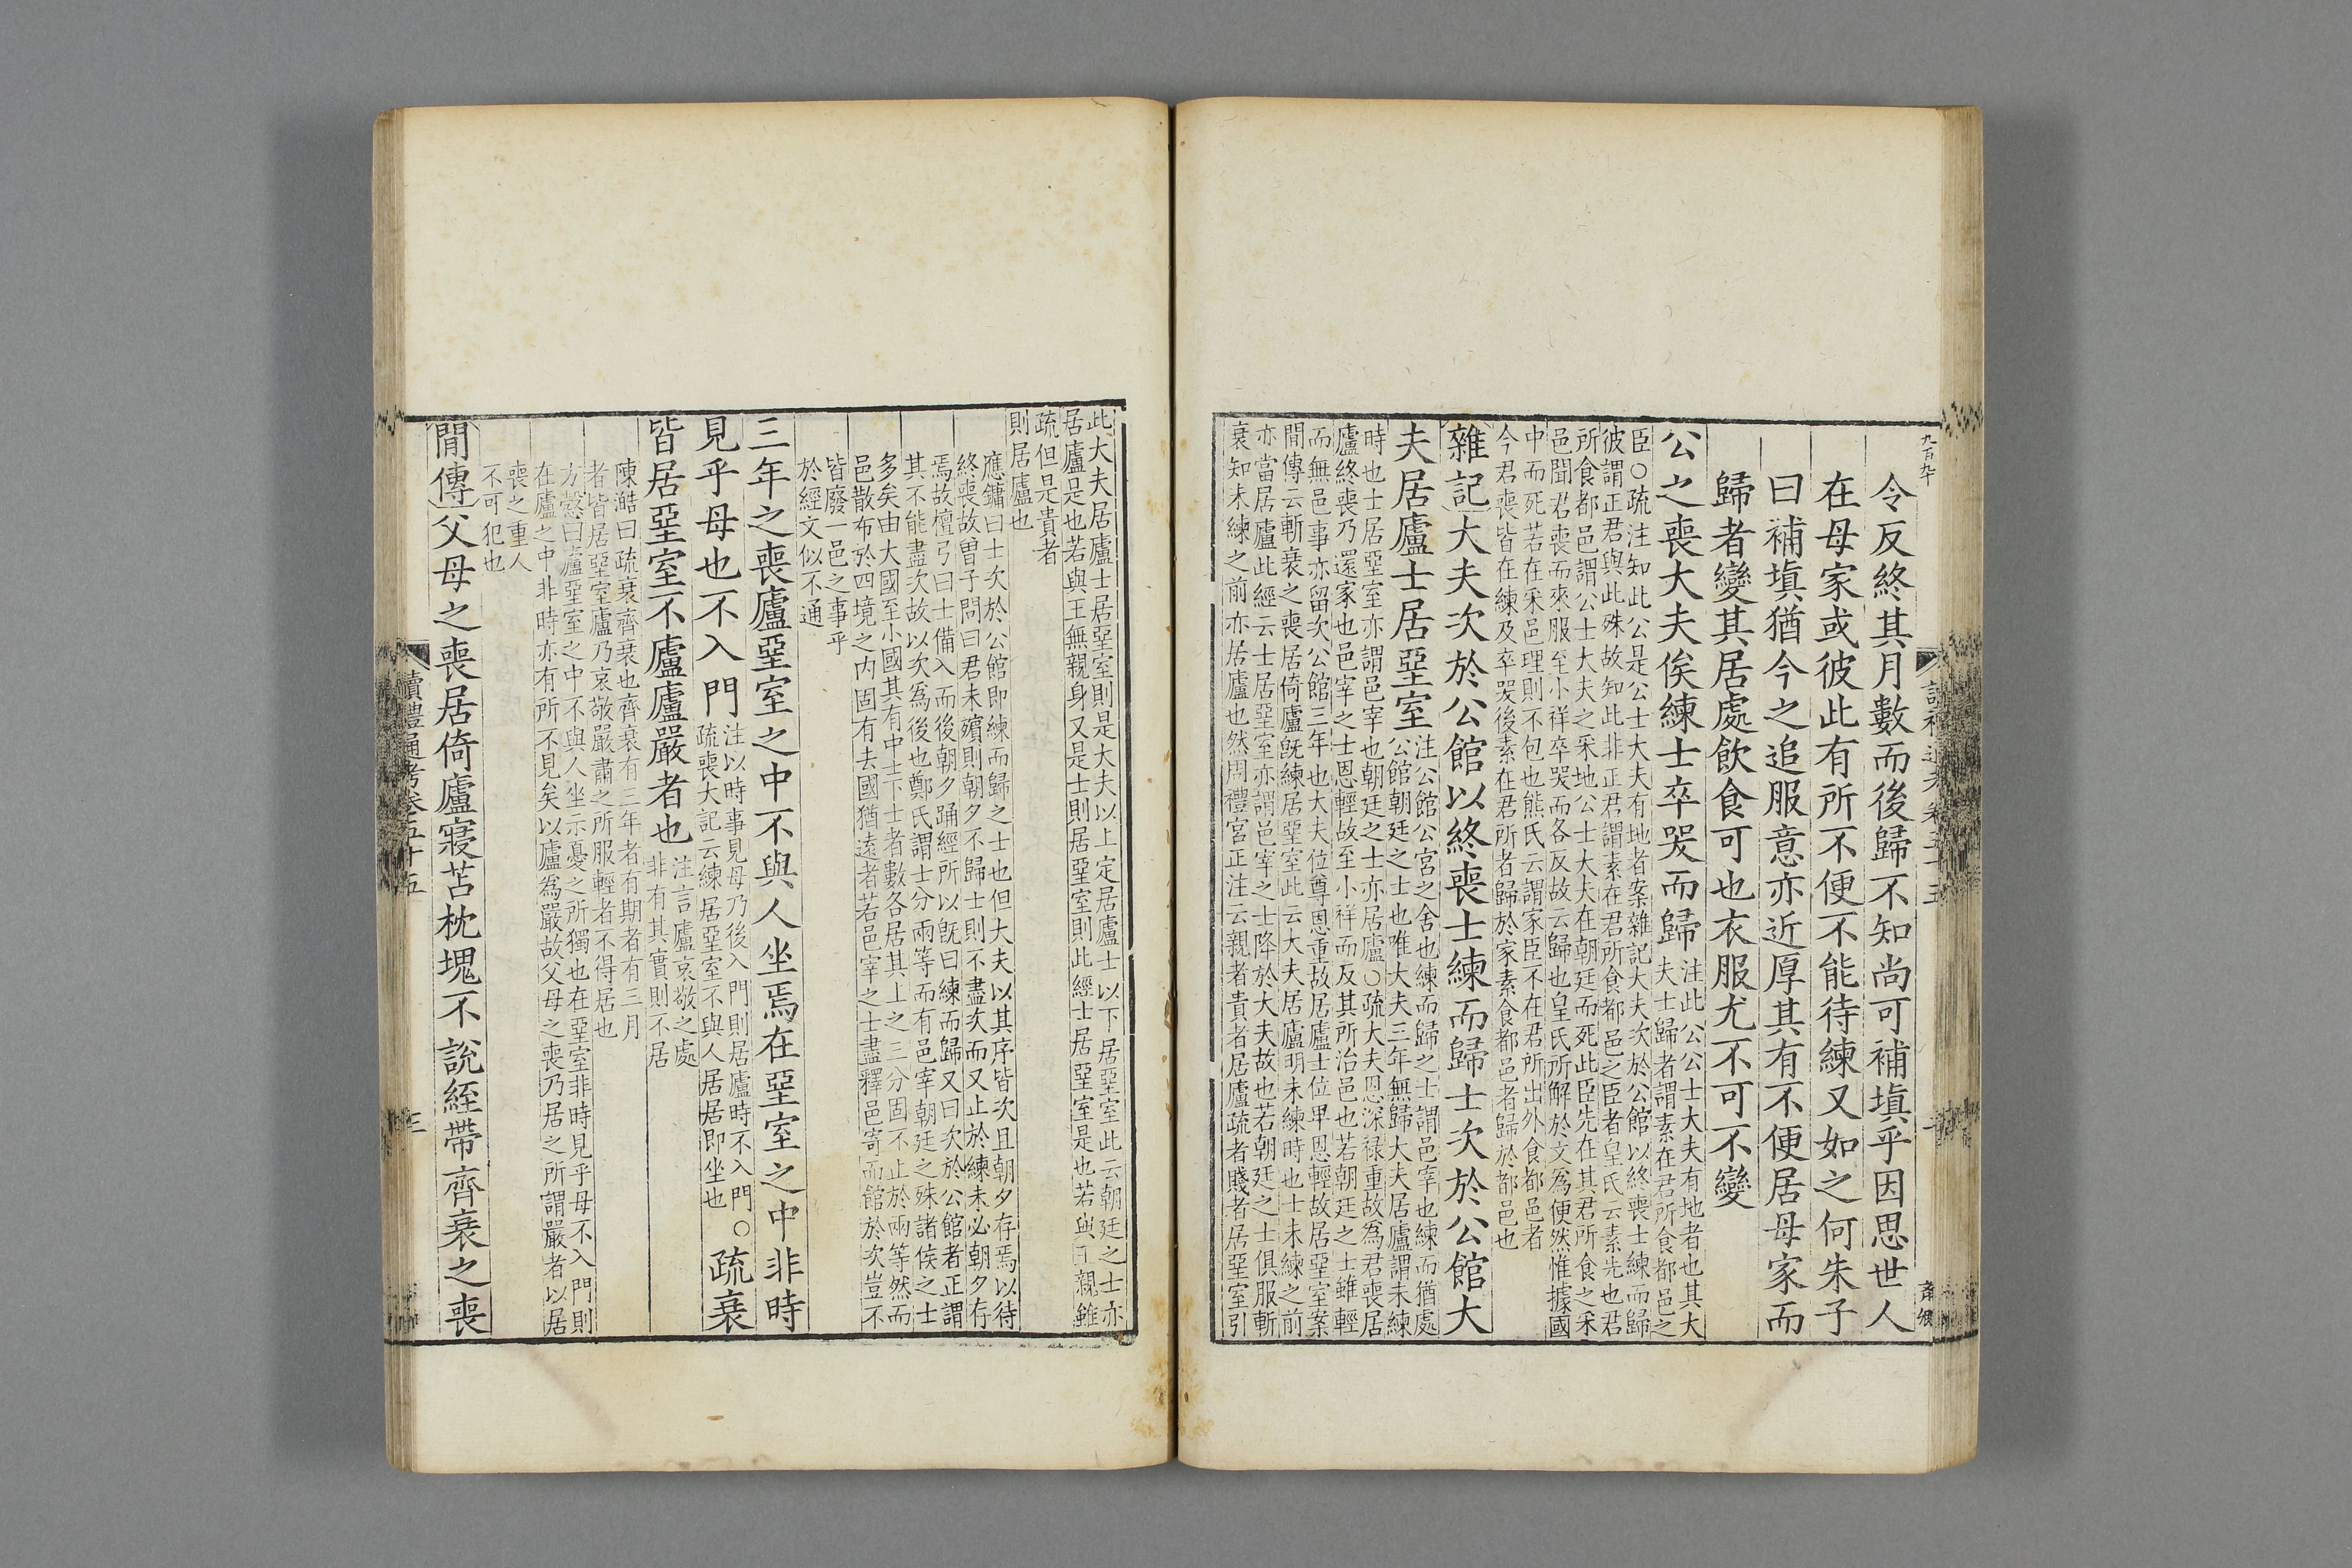 九百九十
令反終其月數而後歸不知尚可補塡乎因思世人
在母家或彼此有所不便不能待練又如之何朱子
曰補塡猶今之追服意亦近厚其有不便居母家而
歸者變其居處飲食可也衣服尤不可不變
公之喪大夫俟練士卒哭而歸
注此公公士大夫有地者也其大
夫士歸者謂素在君所食都邑之
臣○疏注知此公是公士大夫有地者案雜記大夫次於公館以終喪士練而歸
彼謂正君與此殊故知此非正君謂素在君所食都邑之臣者皇氏云素先也君
所食都邑謂公士大夫之采地公士大夫在朝廷而死此臣先在其君所食之采
邑聞君喪而來服至小祥卒哭而各反故云歸也皇氏所解於文為便然惟據國
中而死若在采邑理則不包也熊氏云謂家臣不在君所出外食都邑者
今君喪皆在練及卒哭後素在君所者歸於家素食都邑者歸於都邑也
雜記大夫次於公館以終喪士練而歸士次於公館大
夫居廬士居堊室
注公館公宮之舍也練而歸之士謂邑宰也練而猶處
公館朝廷之士也唯大夫三年無歸大夫居廬謂未練
時也士居堊室亦謂邑宰也朝廷之士亦居廬○疏大夫恩深禄重故為君喪居
廬終喪乃還家也邑宰之士恩輕故至小祥而反其所治邑也若朝廷之士雖輕
而無邑事亦留次公館三年也大夫位尊恩重故居廬士位卑恩輕故居堊室案
閒傳云斬衰之喪居倚廬旣練居堊室此云大夫居廬明未練時也士未練之前
亦當居廬此經云士居堊室亦謂邑宰之士降於大夫故也若朝廷之士俱服斬
衰知未練之前亦居廬也然周禮宮正注云親者貴者居廬疏者賤者居堊室引
此大夫居廬士居堊室則是大夫以上定居廬士以下居堊室此云朝廷之士亦
居廬是也若與王無親身又是士則居堊室則此經士居堊室是也若與王親雖
疏但是貴者
則居廬也
應鏞曰士次於公館即練而歸之士也但大夫以其序皆次且朝夕存焉以待
終喪故曾子問曰君未殯則朝夕不歸士則不盡次而又止於練未必朝夕存
焉故檀弓曰士備入而後朝夕踊經所以旣曰練而歸又曰次於公館者正謂
其不能盡次故以次為後也鄭氏謂士分兩等而有邑宰朝廷之殊諸侯之士
多矣由大國至小國其有中士下士者數各居其上之三分固不止於兩等然而
邑散布於四境之内固有去國猶遠者若邑宰之士盡釋邑寄而館於次豈不
皆廢一邑之事乎
於經文似不通
三年之喪廬堊室之中不與人坐焉在堊室之中非時
見乎母也不入門
注以時事見母乃後入門則居廬時不入門○疏衰
疏喪大記云練居堊室不與人居居即坐也
皆居堊室不廬廬嚴者也
注言廬哀敬之處
非有其實則不居
陳澔曰疏衰齊衰也齊衰有三年者有期者有三月
者皆居堊室廬乃哀敬嚴肅之所服輕者不得居也
方慤曰廬堊室之中不與人坐示憂之所獨也在堊室非時見乎母不入門則
在廬之中非時亦有所不見矣以廬為嚴故父母之喪乃居之所謂嚴者以居
喪之重人
不可犯也
閒傳父母之喪居倚廬寢苫枕塊不說絰帶齊衰之喪
讀禮通考卷五十五
三